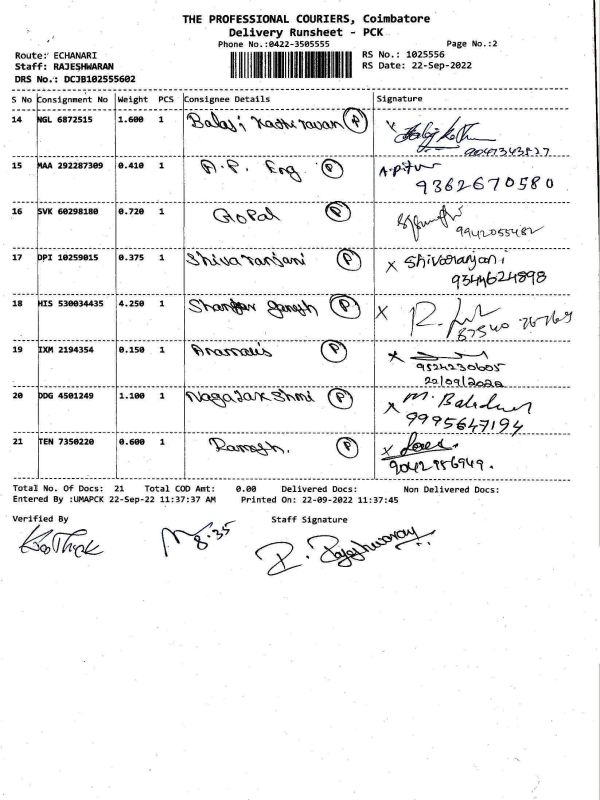 THE PROFESSIONAL COURIERS, Coimbatore
Delivery Runsheet - PCK
Phone No.:0422-3505555 Page No.:2
Route: ECHANARI RS No.: 1025556
Staff: RAJESHWARAN RS Date: 22-Sep-2022
DRS No.: DCJB102555602
S No Consignment No Weight PCS Consignee Details Signature
14 NGL 6872515 1.600 1 Balaji Kathiravan P
15 MAA 292287309 0.410 1 A.P. Eng P
9362670580
16 SVK 60298180 0.720 1 Gopal P
9942055482
17 DPI 10259015 0.375 1 Shivaranjani P x Shivaranjani
9344624898
18 HIS 530034435 4.250 1 Ganesh P x
19 IXM 2194354 0.150 1 P x
9524230605
22/09/2022
20 DDG 4501249 1.100 1 Nagalakshmi P x M.
9995647194
21 TEN 7350220 0.600 1 Ramesh. P x
9042986949.
Total No. Of Docs: 21 Total COD Amt: 0.00 Delivered Docs: Non Delivered Docs:
Entered By :UMAPCK 22-Sep-22 11:37:37 AM Printed On: 22-09-2022 11:37:45
Verified By Staff Signature
8.35 R. Rajeshwaran